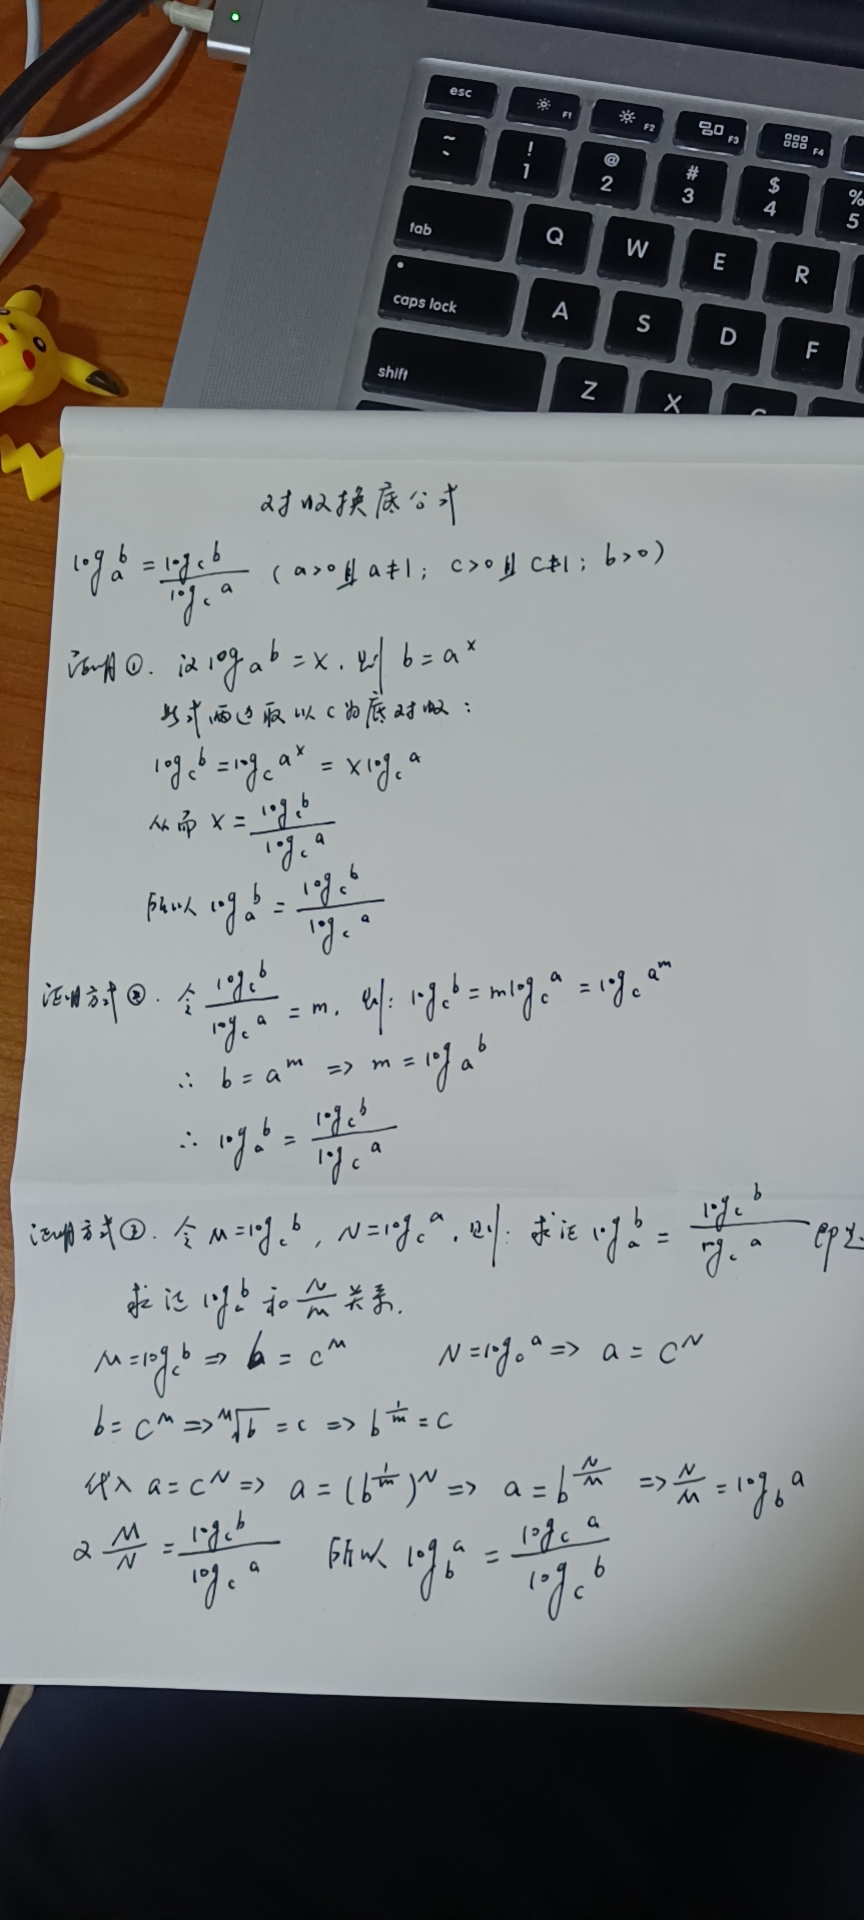 esc F1 F2 F3 F4
~ ! 1 @ 2 # 3 $ 4 % 5
tab Q W E R
caps lock A S D F
shift Z X
对数换底公式
log_a b = log_c b / log_c a (a>0且a≠1; c>0且c≠1; b>0)
证明①. 设log_a b = x. 则 b = a^x
此式两边取以c为底对数:
log_c b = log_c a^x = x log_c a
从而 x = log_c b / log_c a
所以 log_a b = log_c b / log_c a
证明方式②. 令 log_c b / log_c a = m. 则: log_c b = m log_c a = log_c a^m
∴ b = a^m => m = log_a b
∴ log_a b = log_c b / log_c a
证明方式③. 令 M = log_c b, N = log_c a. 则: 求证 log_a b = log_c b / log_c a 即是
求证 log_a b 和 N/M 关系.
M = log_c b => b = c^M N = log_c a => a = c^N
b = c^M => ᴹ√b = c => b^(1/m) = c
代入 a = c^N => a = (b^(1/m))^N => a = b^(N/M) => N/M = log_b a
又 M/N = log_c b / log_c a 所以 log_b a = log_c a / log_c b